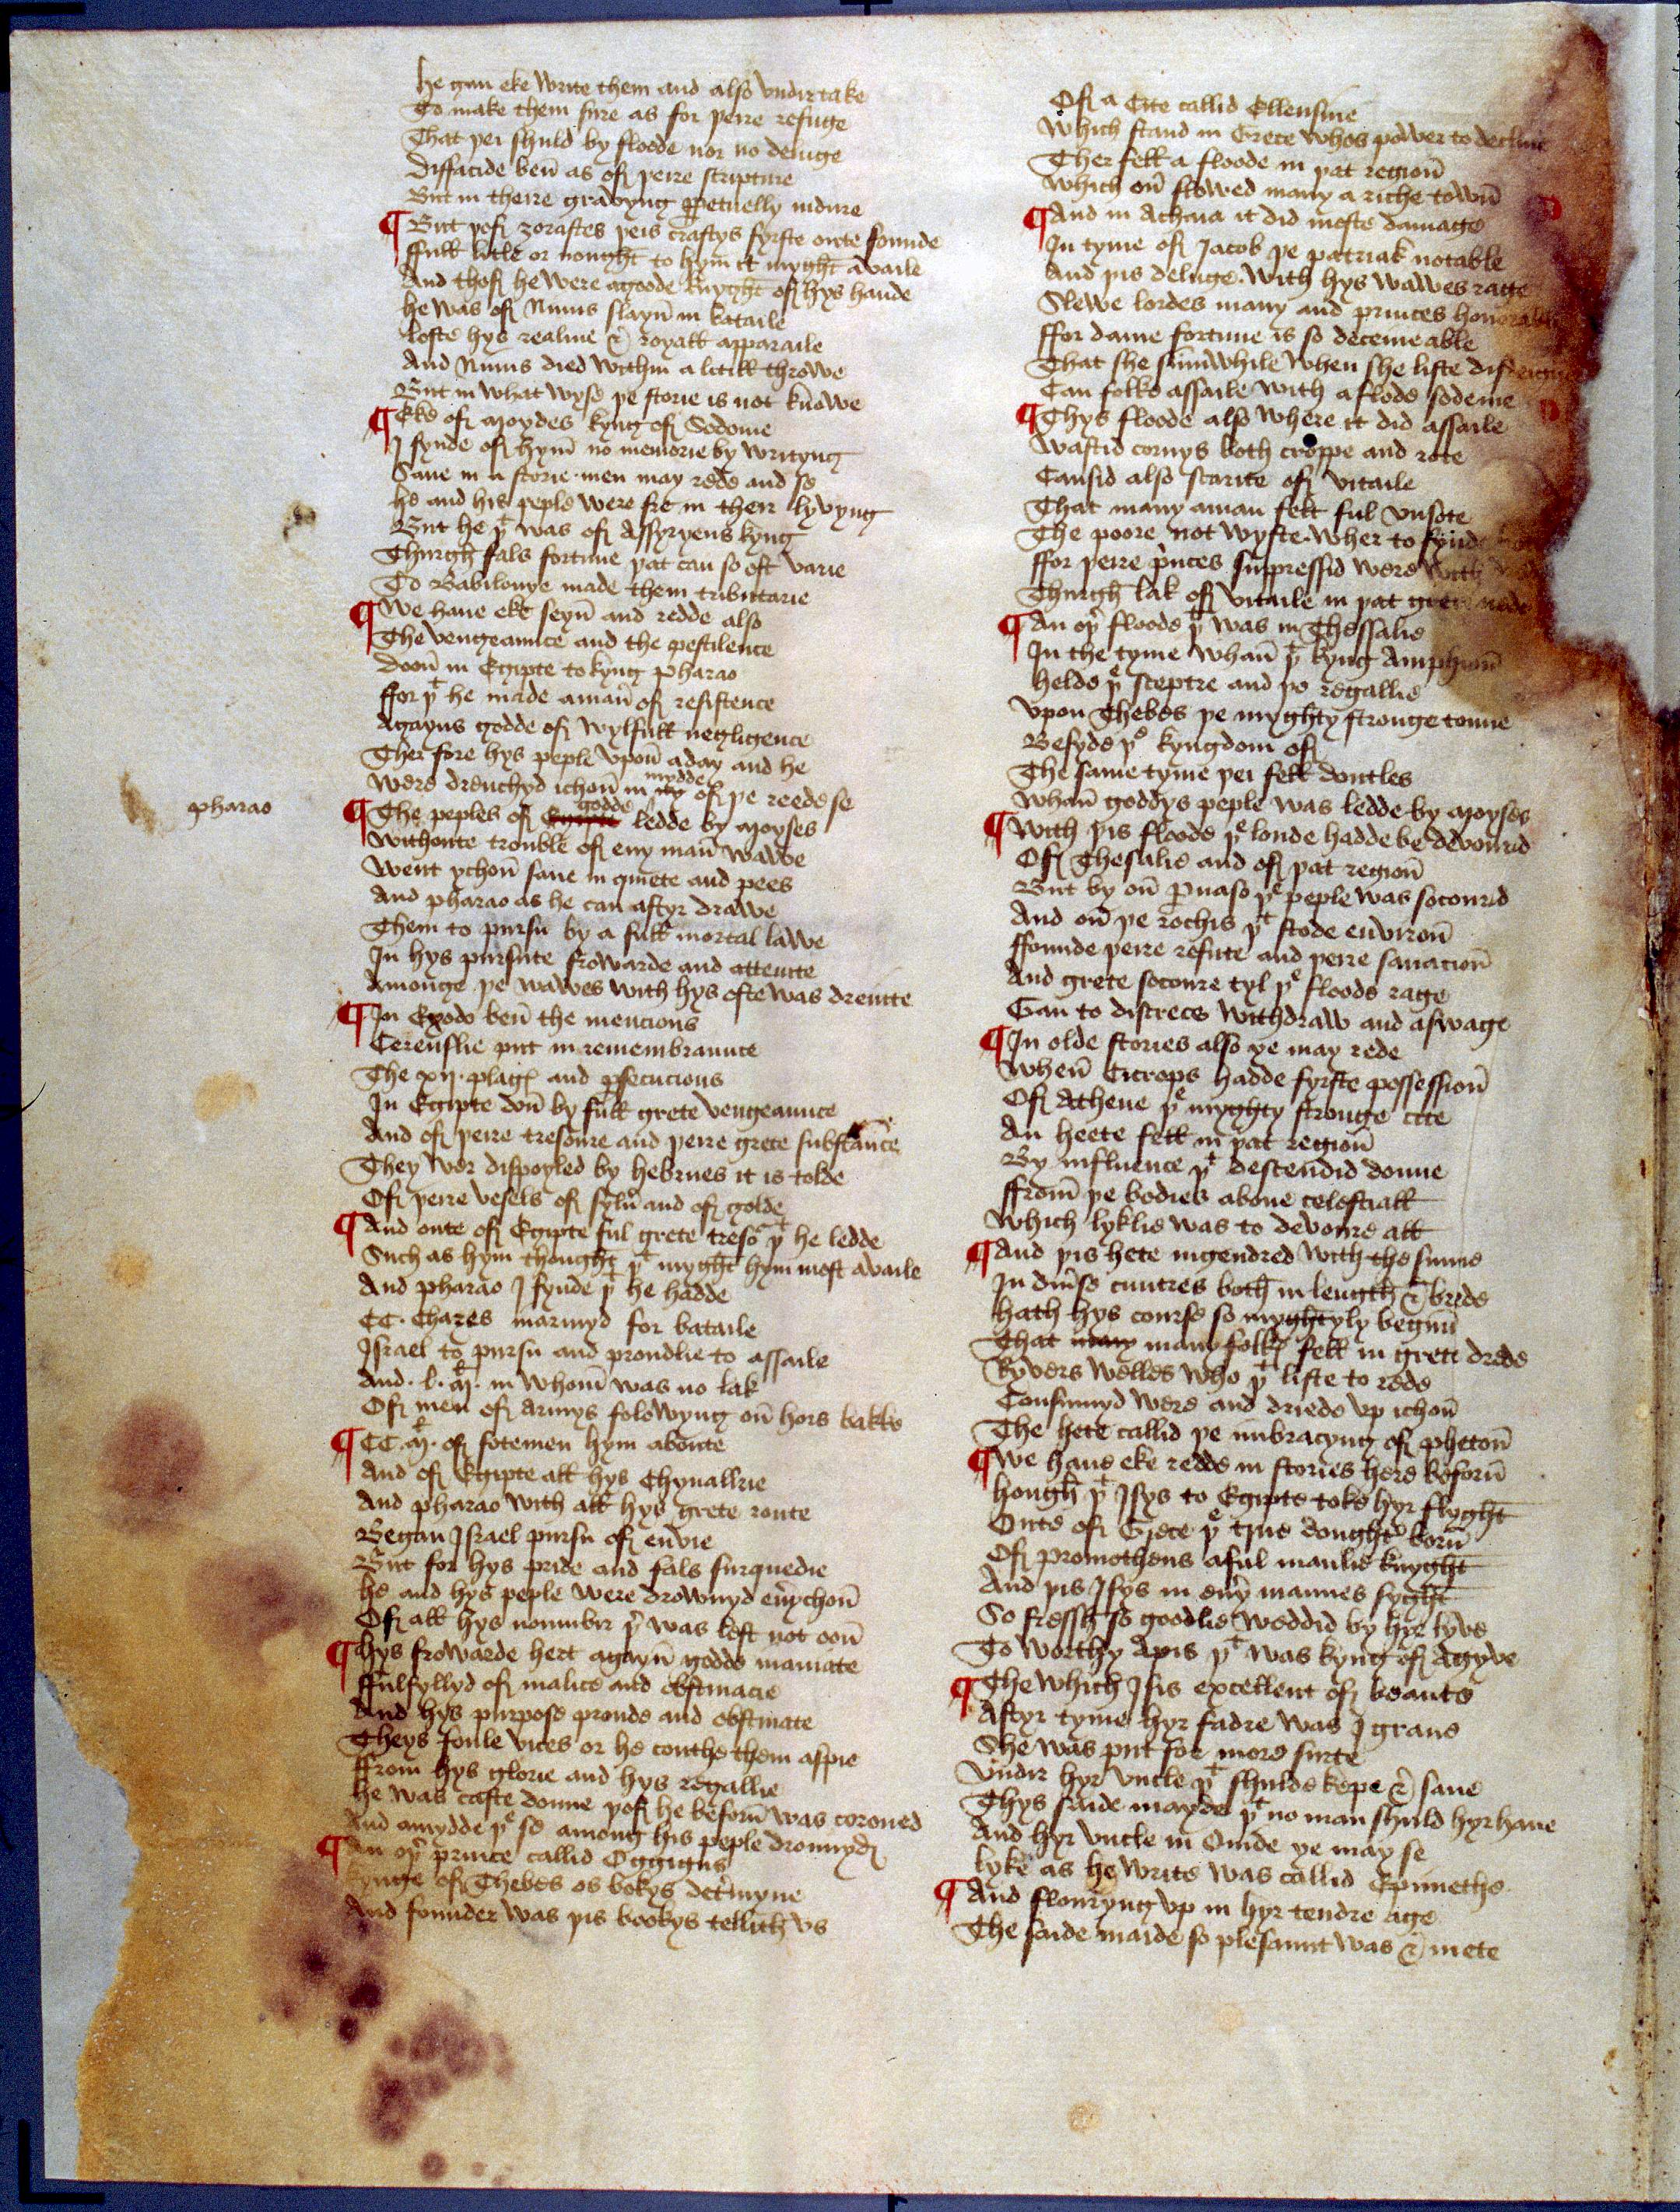 he gan eke write them and also vndirtake
To make them sure as for þeire refuge
That þei shuld by floode nor no deluge
Diffacide ben̄ as off þeire scripture
But in theire gravyng ꝑpetuelly indure
¶ But þoff zorastes þeis craftys fyrste oute founde
ffull litle or nought to hym̄ it myght availe
And thoff he were agoode knyght off hys hande
he was off Ninus slayn̄ in bataile
loste hys realme & royall apparaile
And Ninus died within a litill throwe
But in what wyse þe storie is not knowe
¶ Eke off Moydes kyng off Sodome
I fynde off hym̄ no memorie by writyng
Saue in a storie men may rede and se
he and his peple were fre in their lyvyng
But he þt was off Assyryens kyng
Thurgh fals fortune þat can so oft varie
To Babilonye made them tributarie
¶ We haue eke seyn̄ and redde also
The vengeaunce and the pestilence
Doon̄ in Egipte to kyng Pharao
ffor þt he made aman̄ off resistence
Agayns godde off wylfull negligence
Ther fore hys peple vpon̄ aday and he
were drenchyd ichon̄ in my mydde off þe reede se
pharao
¶ The peples off Egipte godde ledde by Moyses
withoute trouble off eny man̄ wawe
Went ychon̄ saue in quiete and pees
And pharao as he can aftyr drawe
Them to pursu by a full mortal lawe
In hys pursute frowarde and atteinte
Amonge þe wawes with hys oste was dreinte
¶ In Exodo ben̄ the mencions
Cereuslie put in remembraunce
The xij. plagꝭ and ꝑsecucions
In Egipte don̄ by full grete vengeaunce
And off þeire tresoure and þeire grete substance
They wer dispoyled by hebrues it is tolde
Off þeire vesels off sylu̔ and off golde
¶ And oute off Egipte ful grete treso þt he ledde
Such as hym thought þt myght hym most availe
And pharao I fynde þt he hadde
CC. Chares inarmyd for bataile
Israel to pursu and proudlie to assaile
And. l. M. in whom̄ was no lak
Off men off Armys folowyng on̄ hors bakke
¶ CC M. off fotemen hym aboute
And off Egipte all hys Chyuallrie
And pharao with all hys grete route
Began Israel pursu off envie
But for hys pride and fals surquedie
he and hys peple were drownyd eu̔ychon̄
Off all hys noumbir þ̔ was left not oon̄
¶ hys frowarde hert agayn̄ godde inamate
ffulfyllyd off malice and obstinacie
And hys purpose proude and obstinate
Theys foule vices or he couthe them aspie
ffrom hys glorie and hys regallie
he was caste doune þoff he beforn̄ was coroned
And amydde þe se among his peple drounyd
¶ An oþ̔ prince callid Oggigus
kynge off Thebes os bokys det̔myne
And founder was þis bookys tellith vs
Off a Cite callid Ellensine
Which stand in Grece whos power to decline
Ther fell a floode in þat region̄
which on̄ flowed many a riche town̄
¶ And in Athena it did moste damage
In tyme off Jacob þe patriak notable
And þis deluge. with hys wawes rage
Slewe lordes many and princes honorable
ffor dame fortune is so deceiueable
That she sumwhile when she liste
Can folke assaile with a flode sodeine
¶ Thys floode also where it did assaile
wastid cornys both croppe and rote
Causid also scarite off vitaile
That many aman felt ful vnsote
The poore not wyste. wher to fynde
ffor þeire p̔nces suppressid were with
Thurgh lak off vitaile in þat grete nede
¶ An oþ̔ floode þt was in Thessalie
In the tyme whan̄ þt kyng Amphiun̄
helde þe sceptre and þe regallie
vpon Thebes þe myghty stronge toune
Besyde þe kyngdom off
The same tyme þei fell doutles
whan̄ goddys peple was ledde by Moyses
¶ With þis floode þe londe hadde be devourid
Off Thesalie and off þat region̄
But by on̄ Pnaso þe peple was socourid
And on̄ þe rochis þt stode environ̄
ffounde þeire refute and þeire sauacion̄
And grete socoure tyl þe floode rage
Gan to discrece withdraw and aswage
¶ In olde stories also ye may rede
When̄ Cicrops hadde fyrste possession̄
Off Athene þe myghty stronge cite
An heete fell in þat region̄
By influence þt descendid doune
ffrom̄ þe bodies aboue celestiall
which lyklie was to devoure all
¶ And þis hete ingendred with the sunne
In diu̔se cuntres both in length & brede
hath hys course so myghtyly begun̄
That many many folkꝭ fell in grete drede
Ryvers welles who þt liste to rede
Consumyd were and driede vp ichon̄
The hete callid þe inbracyng off pheton̄
¶ We haue eke redde in stories here beforn̄
hough þt Isys to Egipte toke hyr flyght
Oute off Grece þe true dought̔ born̄
Off promotheus aful manlie knyght
And þis Isys in eu̔y mannes syght
So fressh so goodlie weddid by hir lyve
To worthy Apis þt was kyng off Agyve
¶ The which Isis excellent off beaute
Aftyr tyme hyr fadre was I graue
She was put for more surte
Vndir hyr vncle þt shulde kepe & saue
Thys saide mayde þt no man shuld hyr haue
And hyr vncle in Ouide ye may se
lyke as he write was callid Epimethe
¶ And flouryng vp in hyr tendre age
The saide maide so plesaunt was & mete